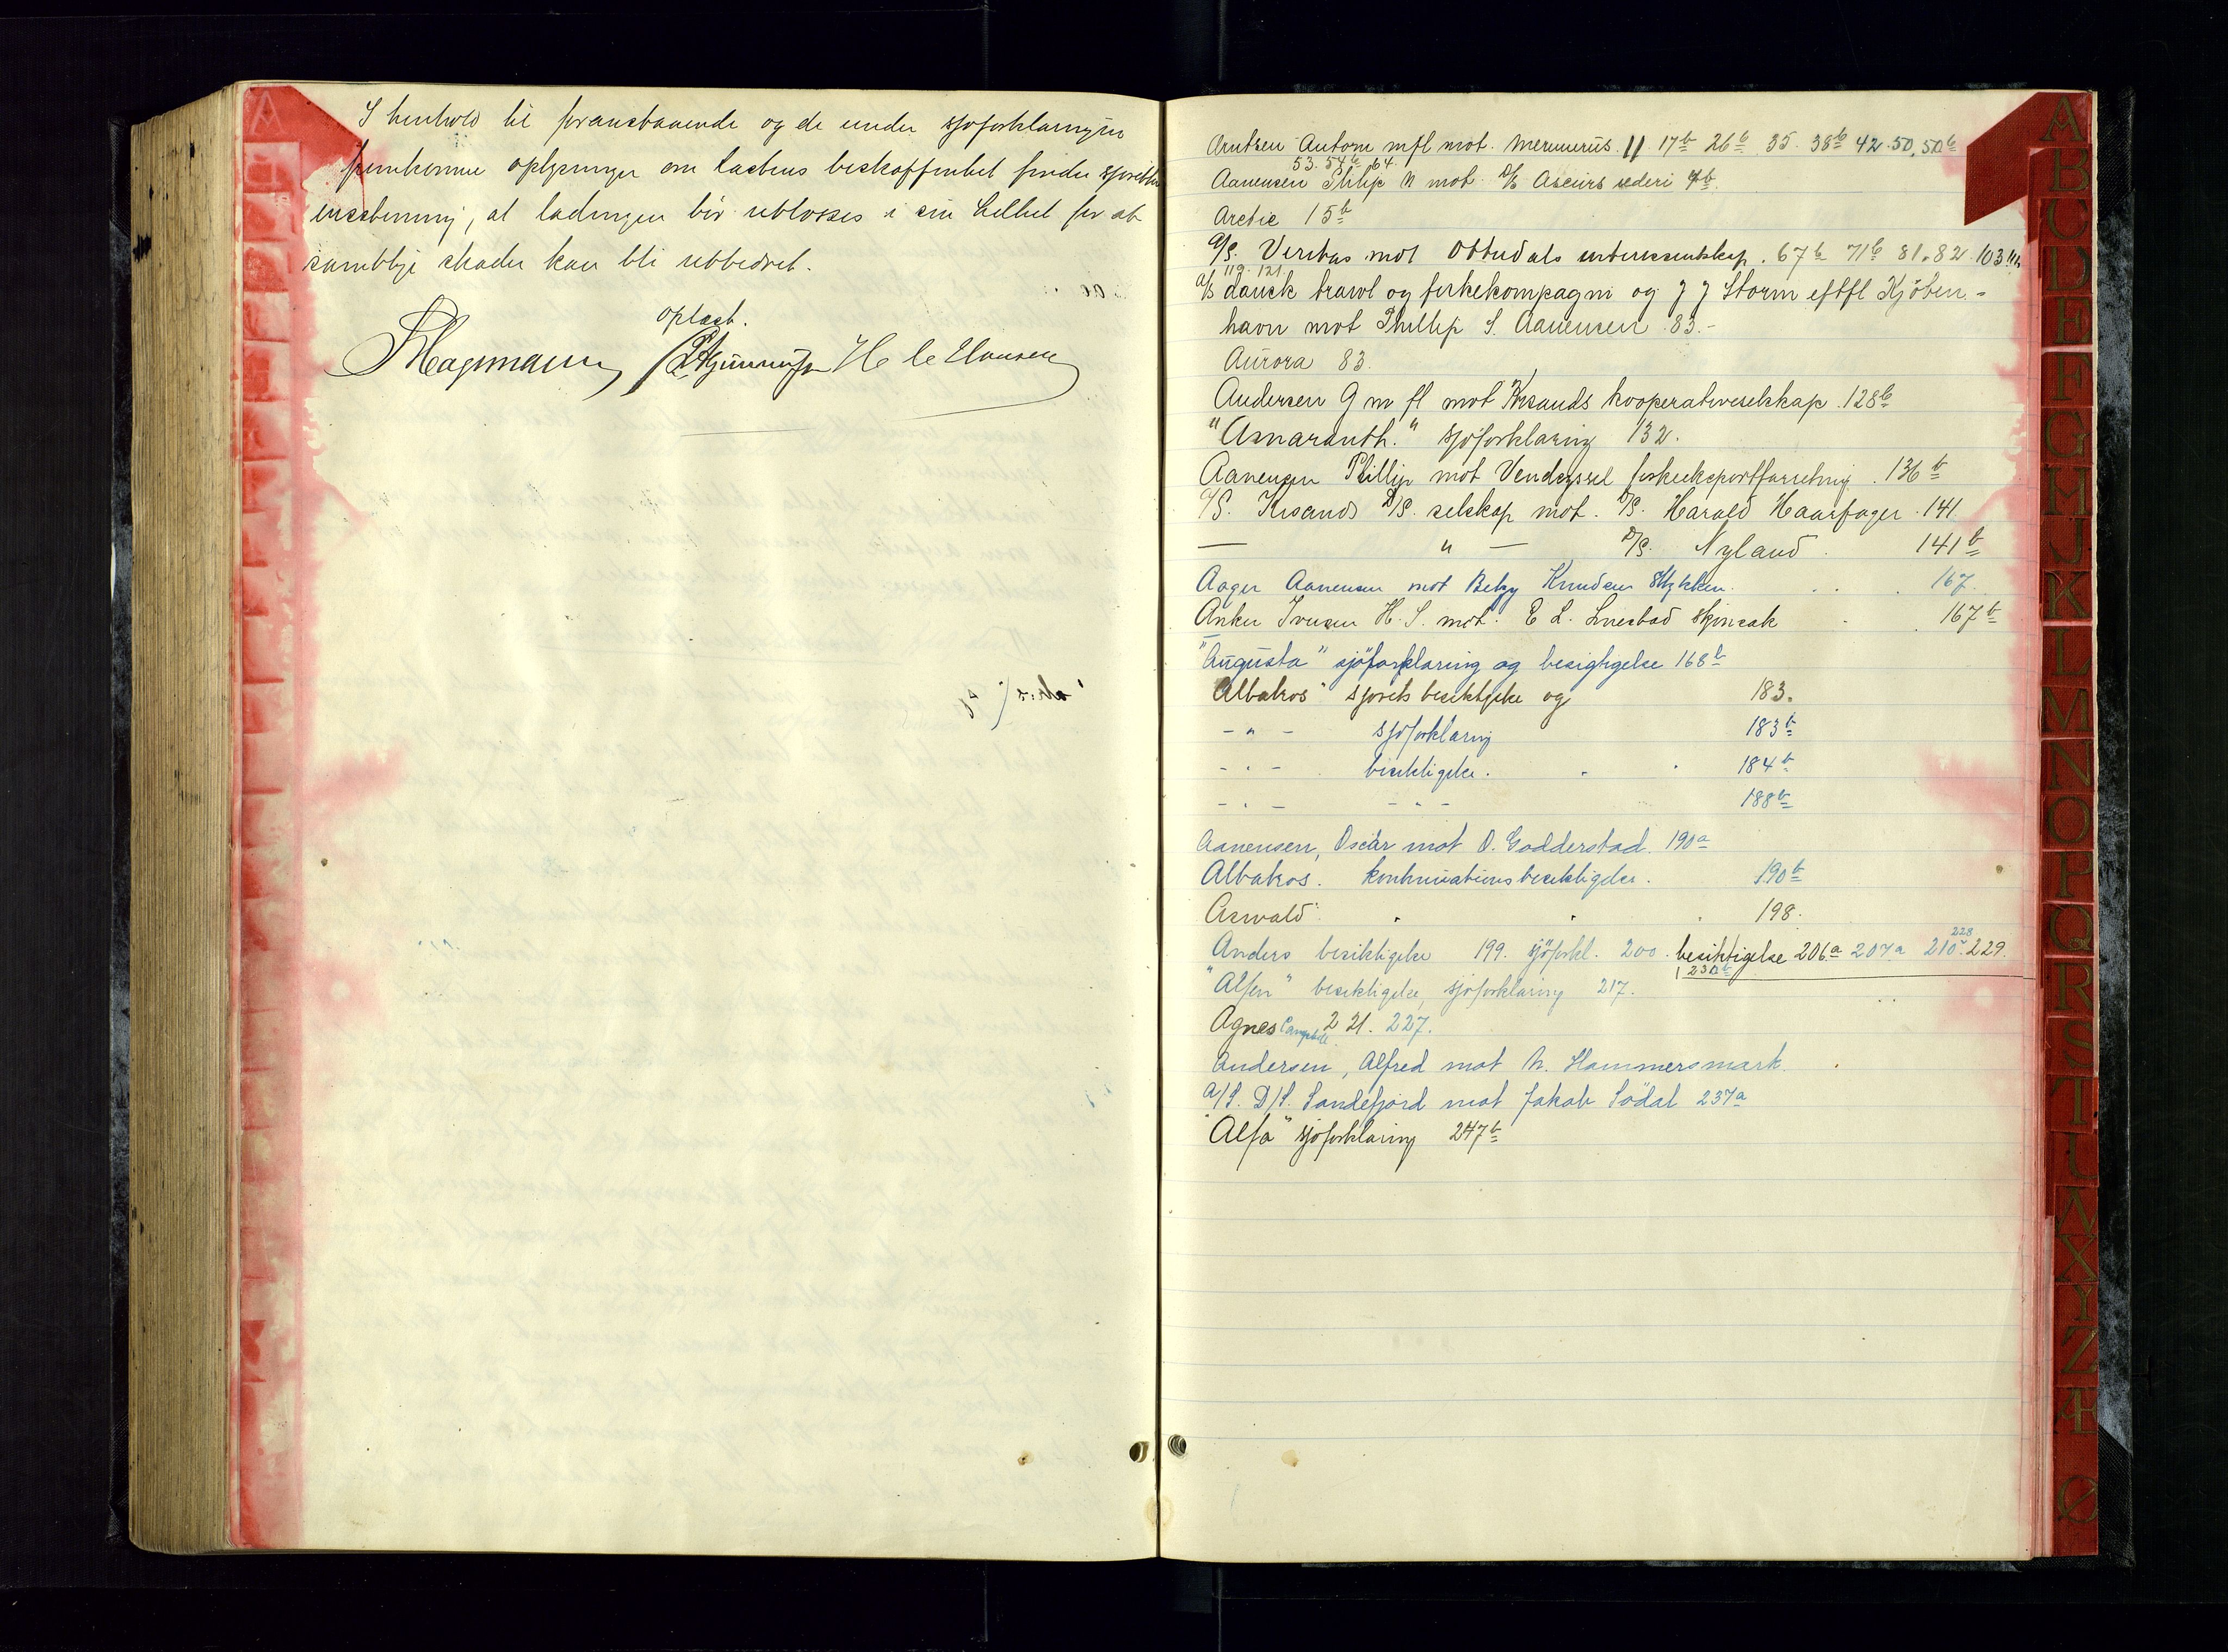 I henhold til foranstaaende og de under sjøforklaringen
fremkomne oplysninger om lastens beskaffenhet finder sjøretten
enstemmig, at ladningen bör utlosses i sin helhet for at
samtlige skader kan bli utbedret.
Oplæst.
Hagemann H C Hansen
Arntsen Antoni mfl mot Mercurius. 11 17b 26b 35. 38b 42. 50, 50b
53. 54b 64.
Aanensen Philip N mot D/S Ascuirs rederi 7b.
Arctic 15b
A/S. Veritas mot Ottudals interessentskap. 67b 71b 81. 82. 103
119. 121.
A/S dansk trawl og fiskekompagni og J J Storm eftfl Kjöben-
havn mot Phillip S. Aanensen 83.-
Aurora 83.
Andersen G m fl mot Krsands kooperativeselskap. 128b
"Amaranth." sjöforklaring 132.
Aanensen Phillip mot Vendyssel fiskeeksportforretning. 136b
A/S. Krsands D/S. selskap mot. D/S. Harald Haarfager. 141
— " — D/S. Nyland. 141b
Aager Aanensen mot Betzy Knudsen 167.
Anker Iversen H. S. mot. E L. Lnestad skjönsak 167b
"Augusta" sjöforklaring og besigtigelse 168b
Albatros" sjörets besiktigelse og 183.
- " - sjöforklaring 183b
- " - besiktigelse. 184b
- " - - " - 188b
Aanensen, Oscar mot O. Godderstad. 190a
Albatros. kontinuationsbesiktigelse. 190b
Aswald". 198.
Anders besiktigelse 199. sjöforkl. 200. besiktigelse 206a 207a 210. 228 229.
230b
"Alfen" besiktigelse, sjøforklaring 217.
Agnes Campbell 221. 227.
Andersen, Alfred mot N. Hammersmark.
A/S. D/S. Sandefjord mot Jakob Södal 237a
"Alfa" sjøforklaring 247b
A
B
C
D
E
F
G
H
J
K
L
M
N
O
P
Q
R
S
T
U
X
Y
Z
Æ
Ø